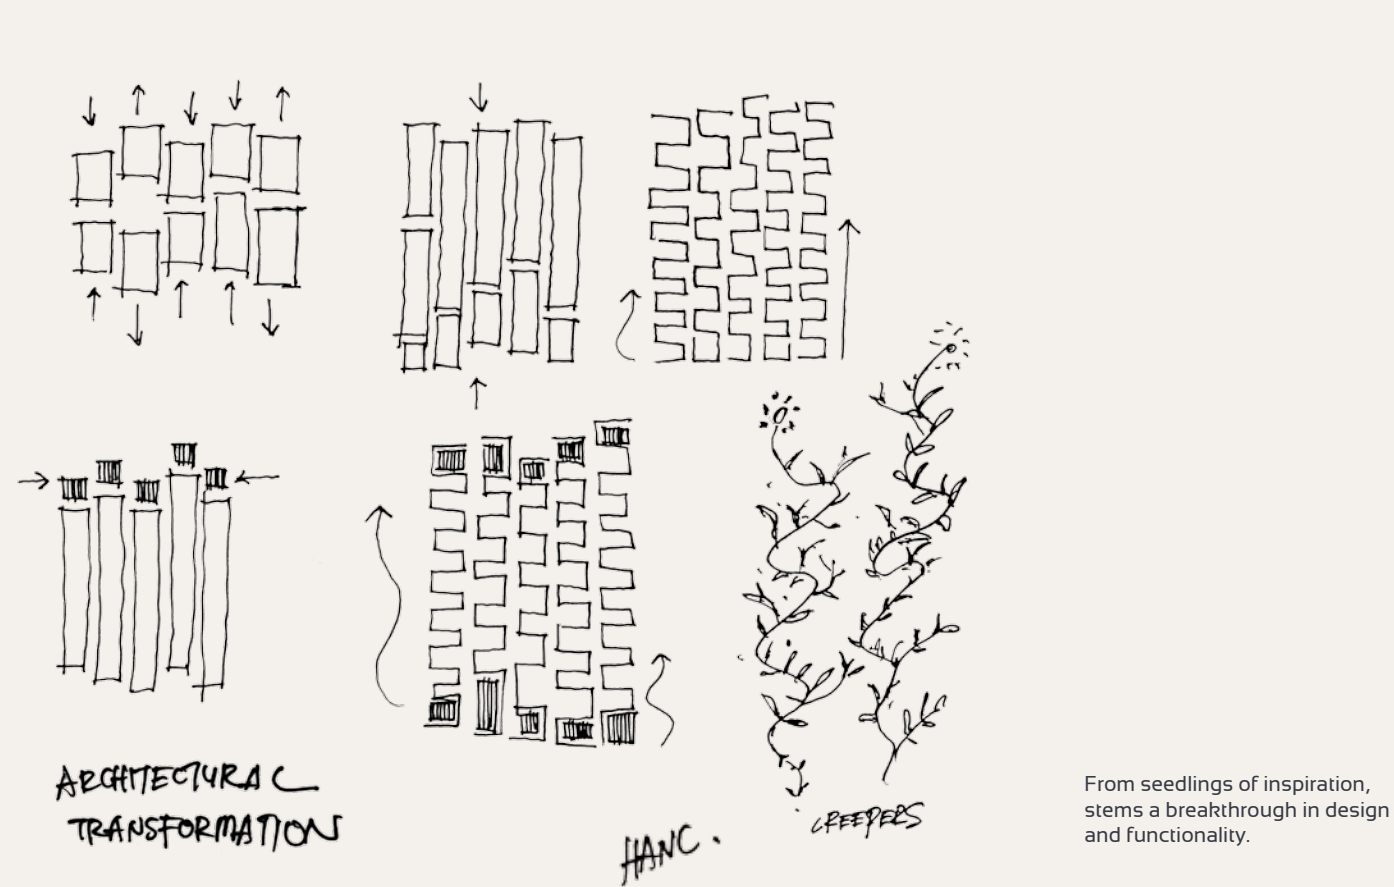 ARCHITECTURAL
TRANSFORMATION
HANC.
CREEPERS
From seedlings of inspiration,
stems a breakthrough in design
and functionality.